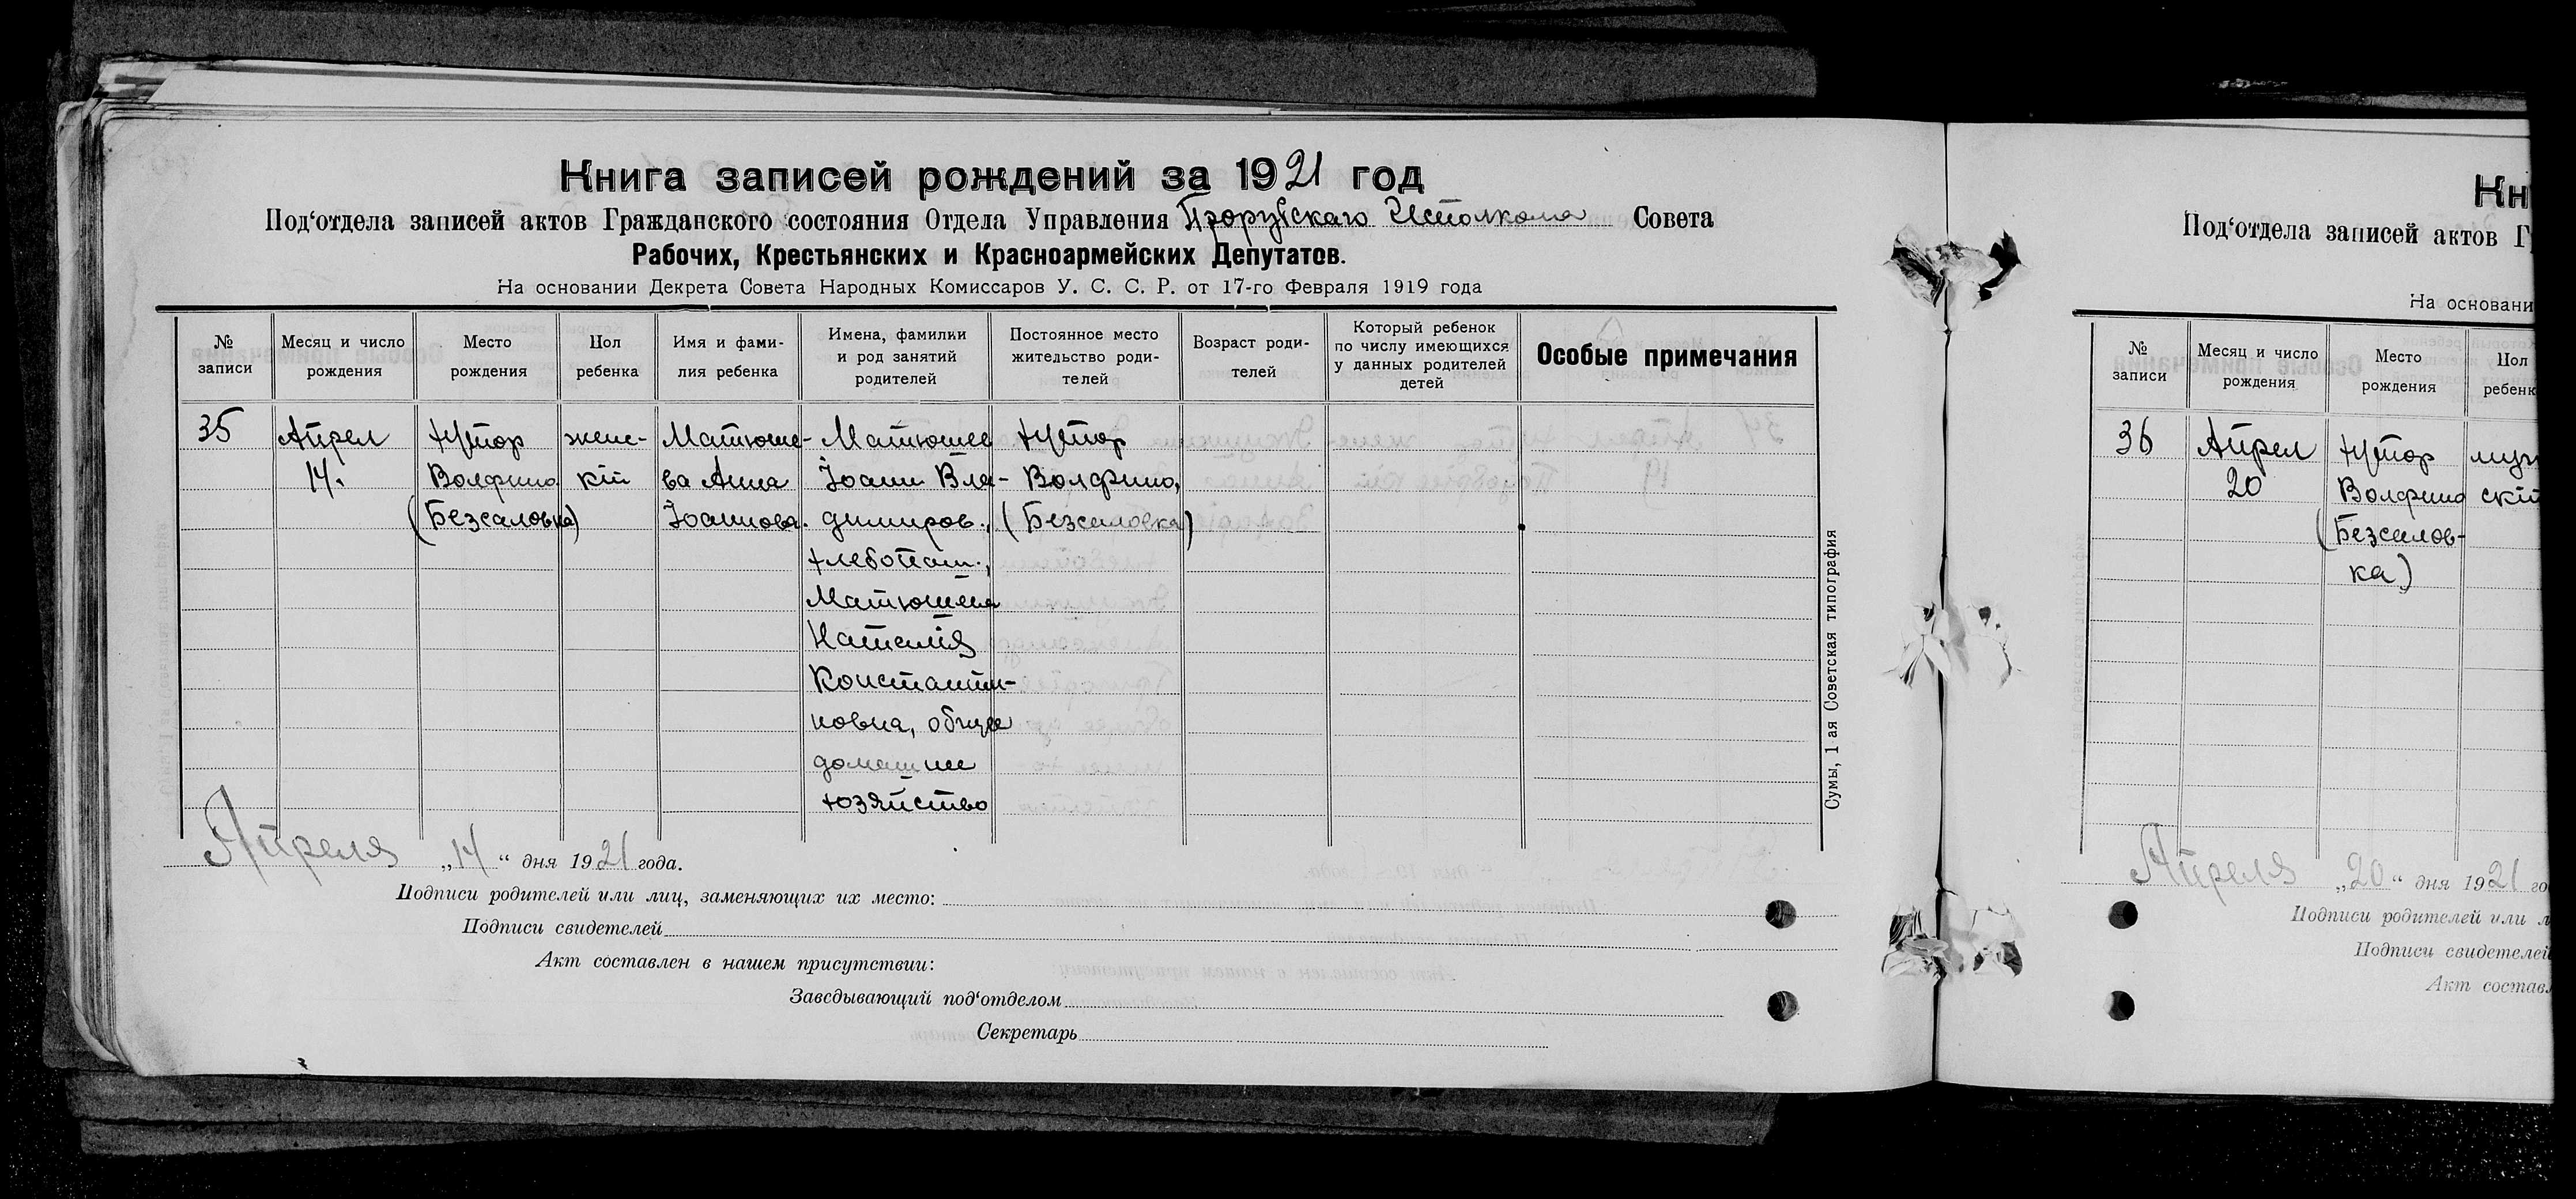 Книга записей рождений за 1921 год
Под‘отдела записей актов Гражданского состояния Отдела Управления Исполкома Совета
Рабочих, Крестьянских и Красноармейских Депутатов.
На основании Декрета Совета Народных Комиссаров У. С. С. Р. от 17-го Февраля 1919 года
№ записи
Месяц и число рождения
Место рождения
Пол ребенка
Имя и фамилия ребенка
Имена, фамилии и род занятий родителей
Постоянное место жительство родителей
Возраст родителей
Который ребенок по числу имеющихся у данных родителей детей
Особые примечания
35
Апрел
14.
Хутор
Волфино
(Безсаловка)
женс-
кій
Матюше-
ва Анна
Іоаннова.
Матюшев
Іоанн Вла-
димиров.,
хлебопаш.,
Матюшева
Наталія
Константи-
новна, общее
домашнее
хозяйство
Хутор
Волфино,
(Безсаловка)
Апреля „14“ дня 1921 года.
Подписи родителей или лиц, заменяющих их место:
Подписи свидетелей
Акт составлен в нашем присутствии:
Заведывающий под‘отделом
Секретарь
Сумы, 1-ая Советская типография
Кн
Под‘отдела записей актов Г
На основани
№ записи
Месяц и число рождения
Место рождения
Пол ребенк
36
Апрел
20
Хутор
Волфино
(Безсалов-
ка)
муж
скій
Апреля „20“ дня 1921 го
Подписи родителей или л
Подписи свидетелей
Акт составл